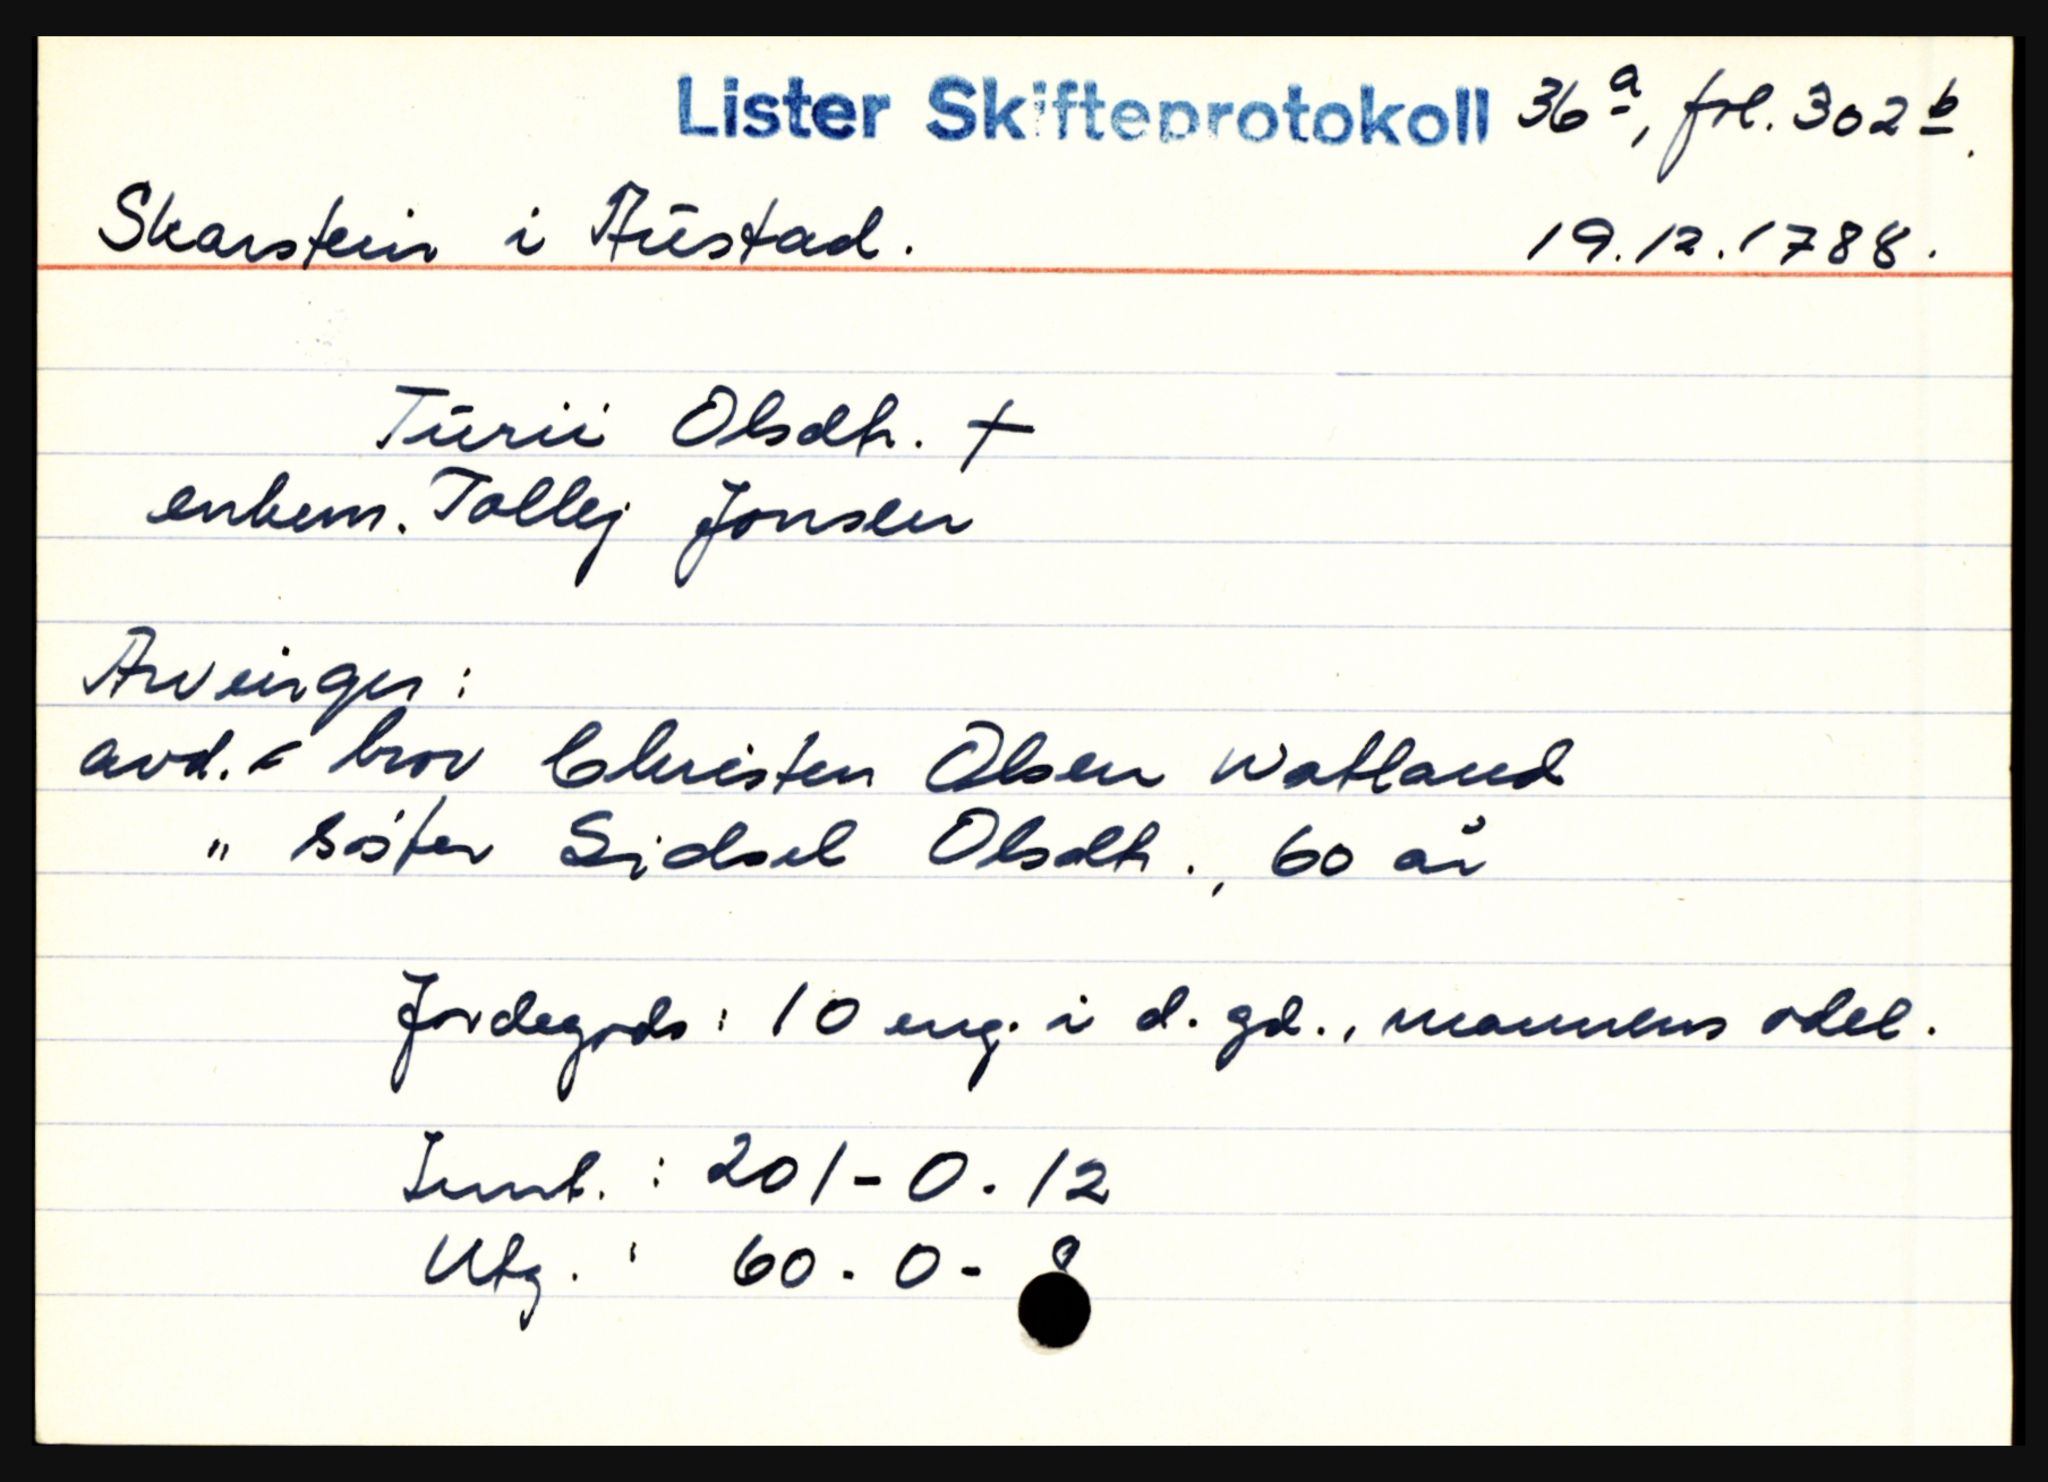 Lister Skifteprotokoll 36ª, fol. 302 b.
Skarstein i Austad. 19.12.1788.
Turii Olsdtr. †
enkem. Tollej Jonsen
Arvinger:
avd.s bror Christen Olsen Watland
" søster Sidsel Olsdtr., 60 år
Jordegods: 10 eng. i d. gd., mannens odel.
Innt. : 201-0-12
Utg. : 60-0-8